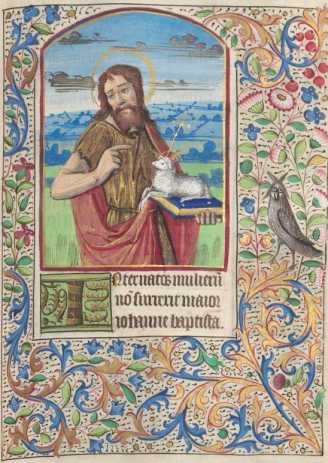 Inter natos mulierū
nō surrexit maior
iohanne baptista.